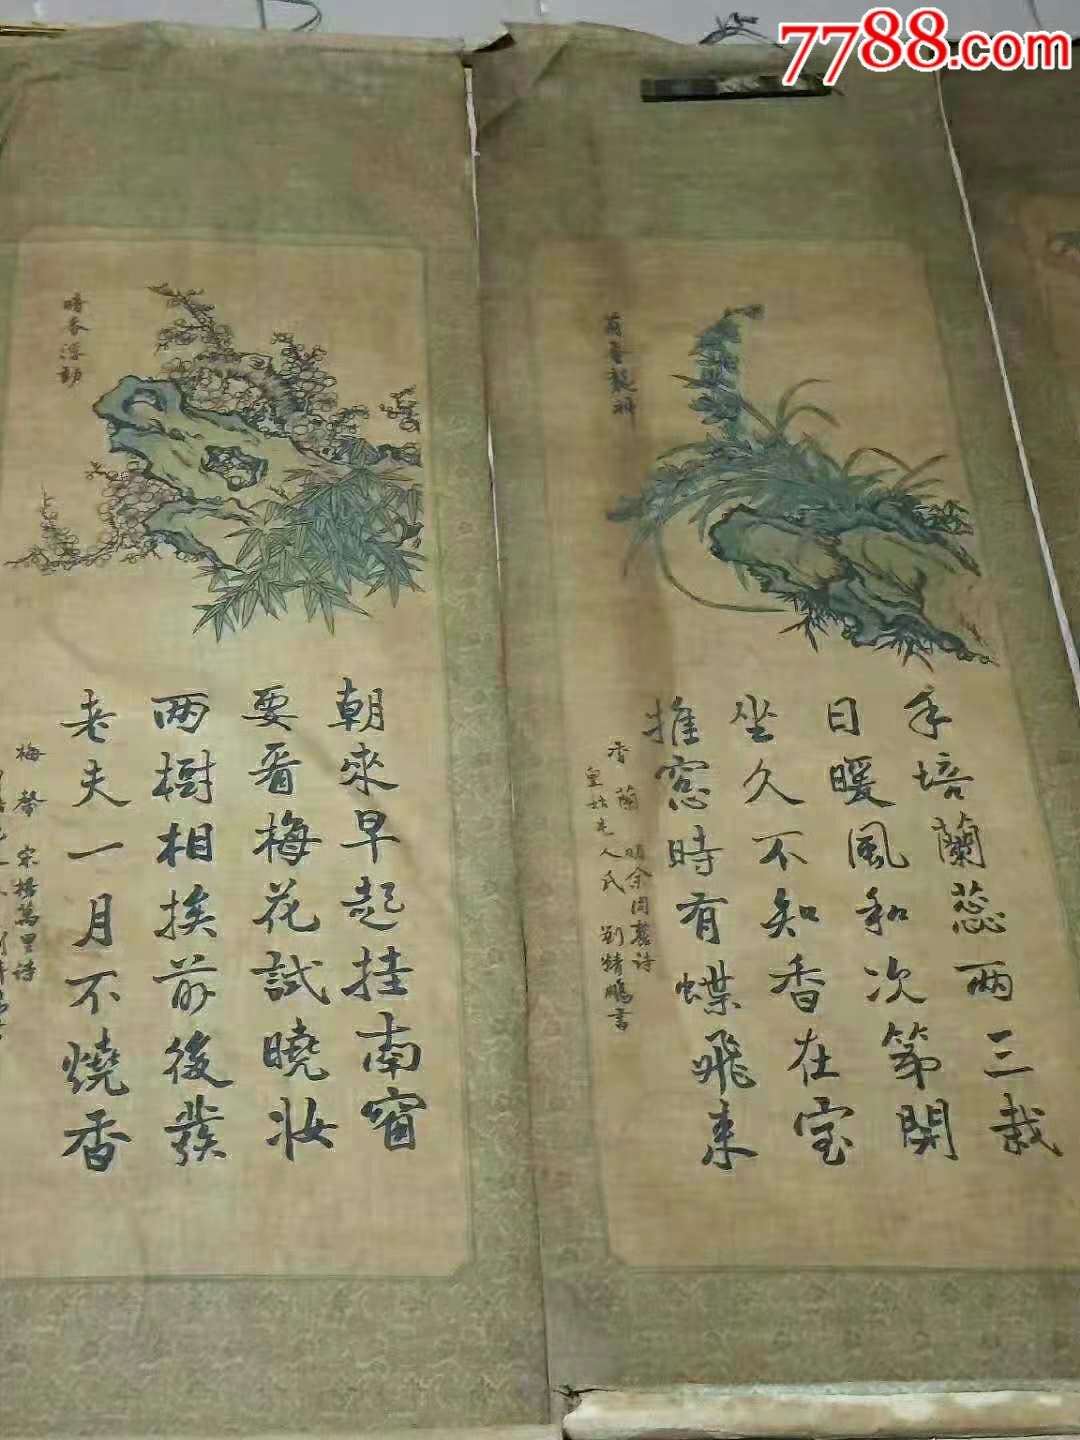 7788.com
手培蘭蕊兩三栽
日暖風和次第開
坐久不知香在室
推窓時有蝶飛來
香蘭 明余同麓诗
人氏 劉精鵬書
暗香浮動
朝來早起挂南窗
要看梅花試曉妝
两樹相挨前後發
老夫一月不燒香
梅馨 宋楊萬里诗